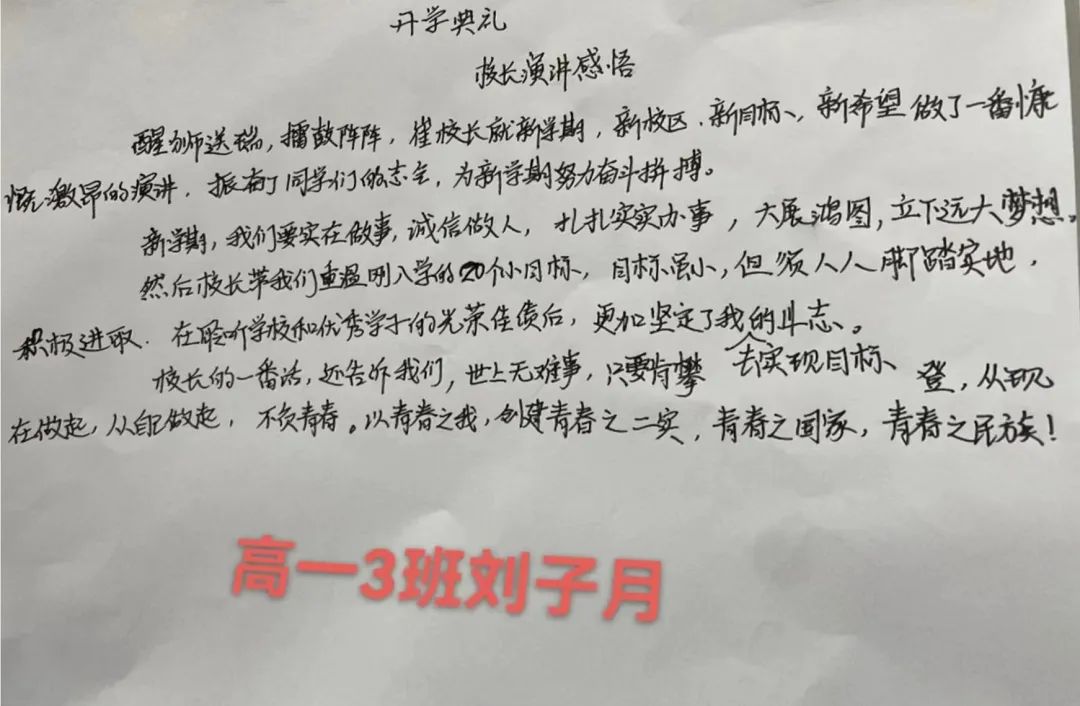 开学典礼
校长演讲感悟
醒狮送瑞，擂鼓阵阵，崔校长就新学期，新校区、新目标、新希望做了一番慷
慨激昂的演讲，振奋了同学们的志气，为新学期努力奋斗拼搏。
新学期，我们要实在做事，诚信做人，扎扎实实办事，大展鸿图，立下远大梦想。
然后校长带我们重温刚入学的20个小目标，目标虽小，但须人人脚踏实地，
积极进取。在聆听学校和优秀学子的光荣佳绩后，更加坚定了我的斗志。
去实现目标
校长的一番话，还告诉我们，世上无难事，只要肯攀登，从现
在做起，从自己做起，不负青春。以青春之我，创建青春之二实，青春之国家，青春之民族！
高一3班刘子月